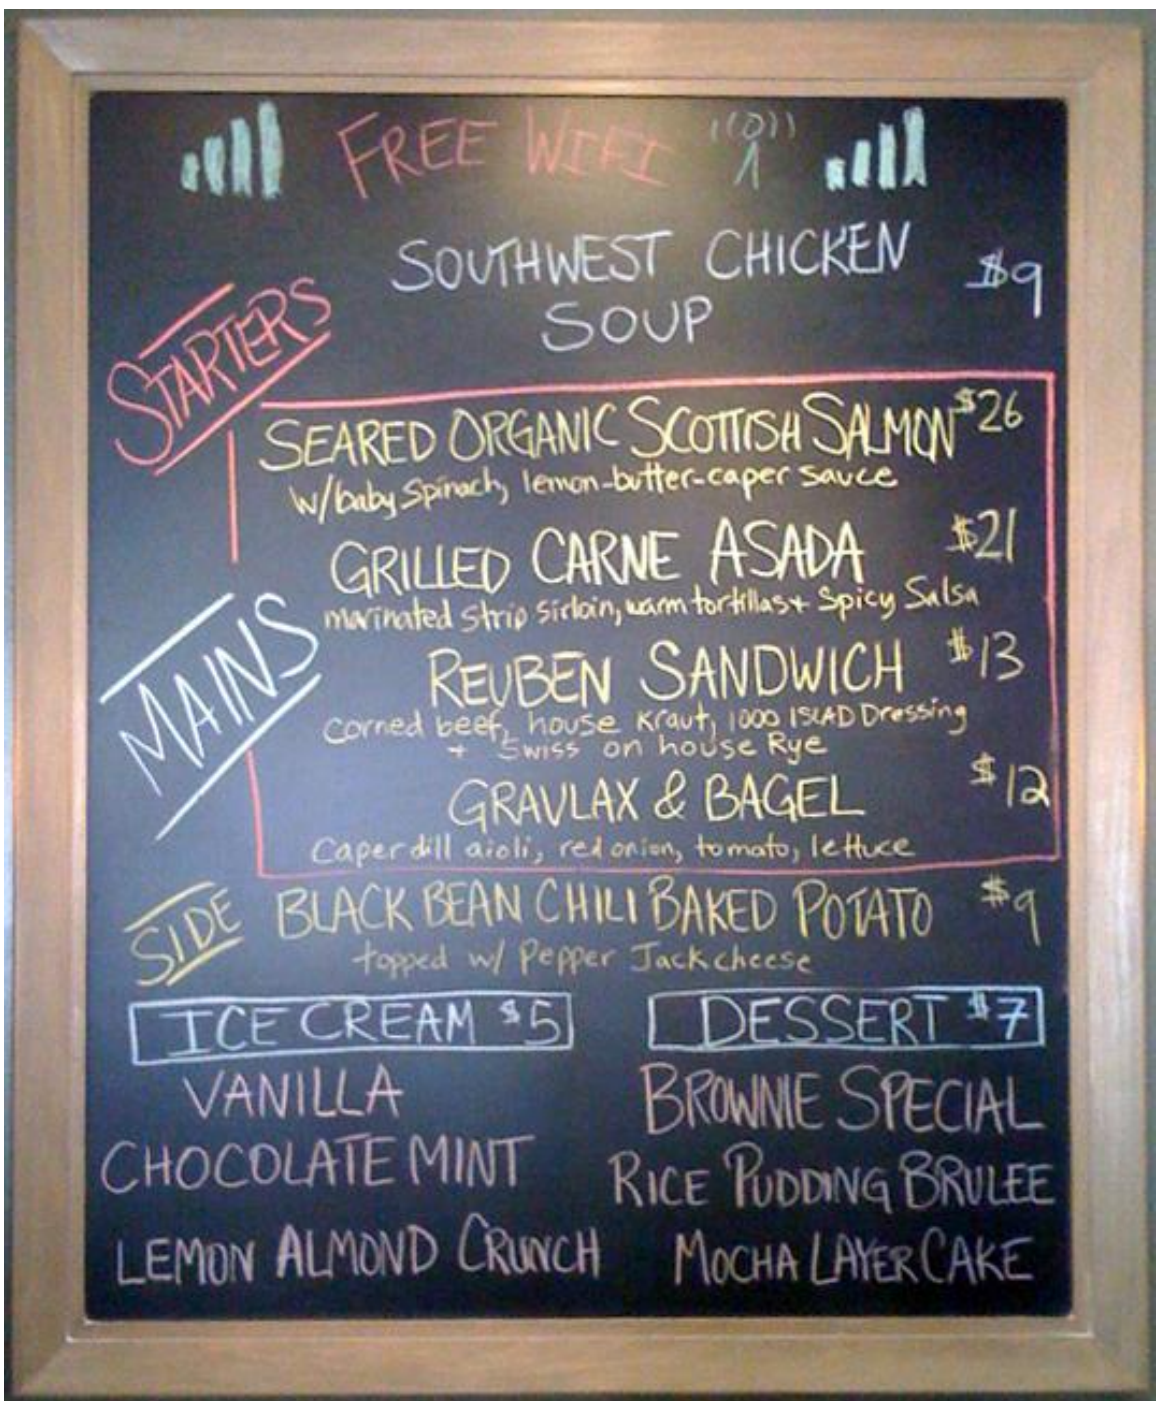 FREE WIFI
SOUTHWEST CHICKEN $9
SOUP
STARTERS
SEARED ORGANIC SCOTTISH SALMON $26
w/baby Spinach, lemon-butter-caper sauce
GRILLED CARNE ASADA $21
marinated strip sirloin, warm tortillas + Spicy Salsa
MAINS
REUBEN SANDWICH $13
Corned beef, house Kraut, 1000 ISLAD Dressing
+ Swiss on house Rye
GRAVLAX & BAGEL $12
Caper dill aioli, red onion, tomato, lettuce
SIDE BLACK BEAN CHILI BAKED POTATO $9
topped w/ Pepper Jack cheese
ICE CREAM $5
VANILLA
CHOCOLATE MINT
LEMON ALMOND CRUNCH
DESSERT $7
BROWNIE SPECIAL
RICE PUDDING BRULEE
MOCHA LAYER CAKE